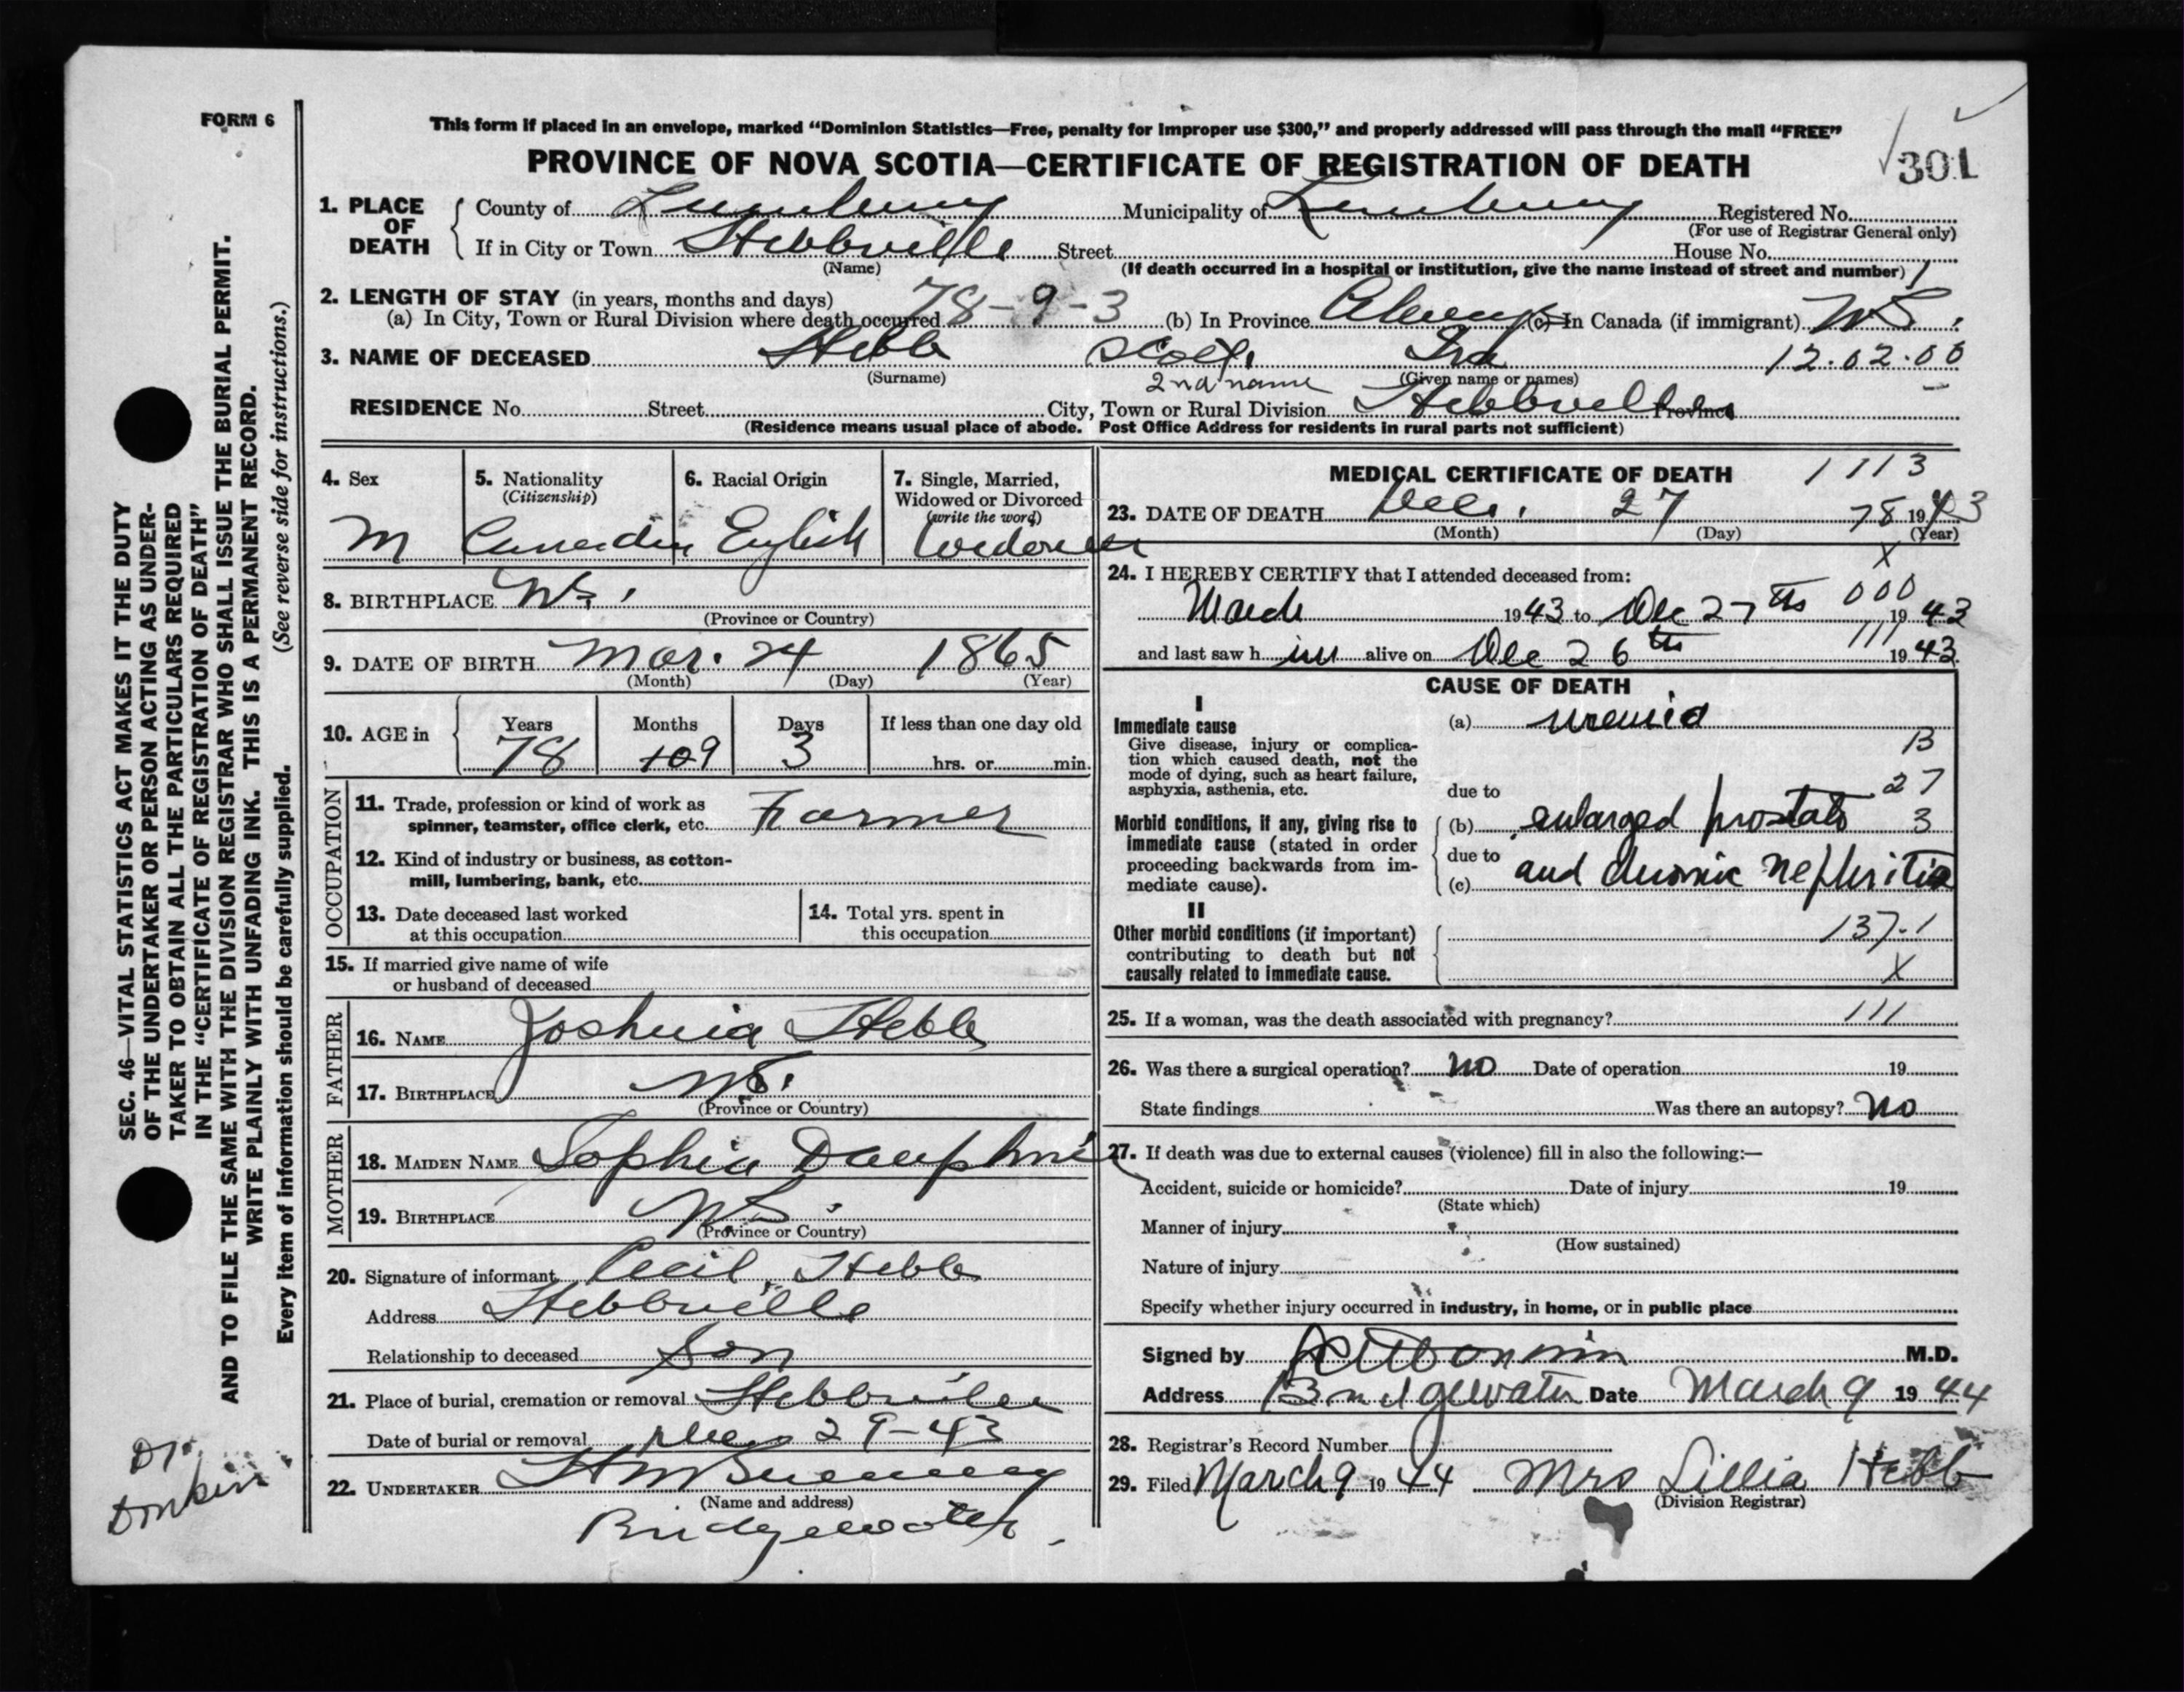 FORM 6
This form if placed in an envelope, marked “Dominion Statistics—Free, penalty for improper use $300,” and properly addressed will pass through the mail “FREE”
PROVINCE OF NOVA SCOTIA—CERTIFICATE OF REGISTRATION OF DEATH
301
1. PLACE OF DEATH
County of Lunenburg Municipality of Lunenburg Registered No.
(For use of Registrar General only)
If in City or Town Hebbville Street House No.
(Name) (If death occurred in a hospital or institution, give the name instead of street and number)
2. LENGTH OF STAY (in years, months and days)
(a) In City, Town or Rural Division where death occurred 78-9-3 (b) In Province Always (c) In Canada (if immigrant) N.S.
3. NAME OF DECEASED Hebb Scott Ira 12.02.00
(Surname) 2nd name (Given name or names)
RESIDENCE No. Street City, Town or Rural Division Hebbville Province
(Residence means usual place of abode. Post Office Address for residents in rural parts not sufficient)
4. Sex
M
5. Nationality
(Citizenship)
Canadian
6. Racial Origin
English
7. Single, Married,
Widowed or Divorced
(write the word)
Widower
8. BIRTHPLACE N.S.
(Province or Country)
9. DATE OF BIRTH Mar. 24 1865
(Month) (Day) (Year)
10. AGE in
Years Months Days If less than one day old
78 9 3 hrs. or min.
OCCUPATION
11. Trade, profession or kind of work as
spinner, teamster, office clerk, etc. Farmer
12. Kind of industry or business, as cotton-
mill, lumbering, bank, etc.
13. Date deceased last worked
at this occupation
14. Total yrs. spent in
this occupation
15. If married give name of wife
or husband of deceased
FATHER
16. NAME Joshuia Hebb
17. BIRTHPLACE N.S.
(Province or Country)
MOTHER
18. MAIDEN NAME Sophia Dauphine
19. BIRTHPLACE N.S.
(Province or Country)
20. Signature of informant Cecil Hebb
Address Hebbville
Relationship to deceased Son
21. Place of burial, cremation or removal Hebbville
Date of burial or removal Dec 29-43
22. UNDERTAKER
(Name and address)
Bridgewater
MEDICAL CERTIFICATE OF DEATH 1113
23. DATE OF DEATH Dec. 27 78 1943
(Month) (Day) (Year)
X
24. I HEREBY CERTIFY that I attended deceased from:
000
March 1943 to Dec 27th 1943
111
and last saw h im alive on Dec 26th 1943
CAUSE OF DEATH
I
Immediate cause
Give disease, injury or complica-
tion which caused death, not the
mode of dying, such as heart failure,
asphyxia, asthenia, etc.
(a) uremia
B
27
due to
Morbid conditions, if any, giving rise to
immediate cause (stated in order
proceeding backwards from im-
mediate cause).
(b) enlarged prostate 3
due to
(c) and chronic nephritis
II
Other morbid conditions (if important)
contributing to death but not
causally related to immediate cause.
137-1
X
25. If a woman, was the death associated with pregnancy? 111
26. Was there a surgical operation? no Date of operation 19
State findings Was there an autopsy? no
27. If death was due to external causes (violence) fill in also the following:—
Accident, suicide or homicide? Date of injury 19
(State which)
Manner of injury
(How sustained)
Nature of injury
Specify whether injury occurred in industry, in home, or in public place
Signed by M.D.
Address Bridgewater Date March 9 1944
28. Registrar's Record Number
29. Filed March 9 1944 Mrs Lillia Hebb
(Division Registrar)
SEC. 46—VITAL STATISTICS ACT MAKES IT THE DUTY
OF THE UNDERTAKER OR PERSON ACTING AS UNDER-
TAKER TO OBTAIN ALL THE PARTICULARS REQUIRED
IN THE “CERTIFICATE OF REGISTRATION OF DEATH”
AND TO FILE THE SAME WITH THE DIVISION REGISTRAR WHO SHALL ISSUE THE BURIAL PERMIT.
WRITE PLAINLY WITH UNFADING INK. THIS IS A PERMANENT RECORD.
Every item of information should be carefully supplied. (See reverse side for instructions.)
Dr.
Donkin